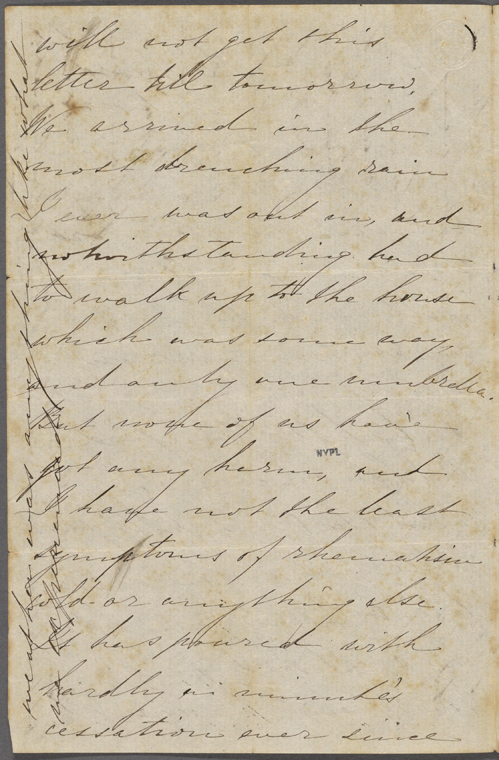 will not get this
letter till tomorrow,
We arrived in the
most drenching rain
I ever was out in, and
notwithstanding had
to walk up to the house
which was some way,
and only one umbrella.
But none of us have
got any harm, and
I have not the least
symptoms of rhematism
cold or anything else.
It has poured with
hardly a minute's
cessation ever since
NYPL
weather was anything like what